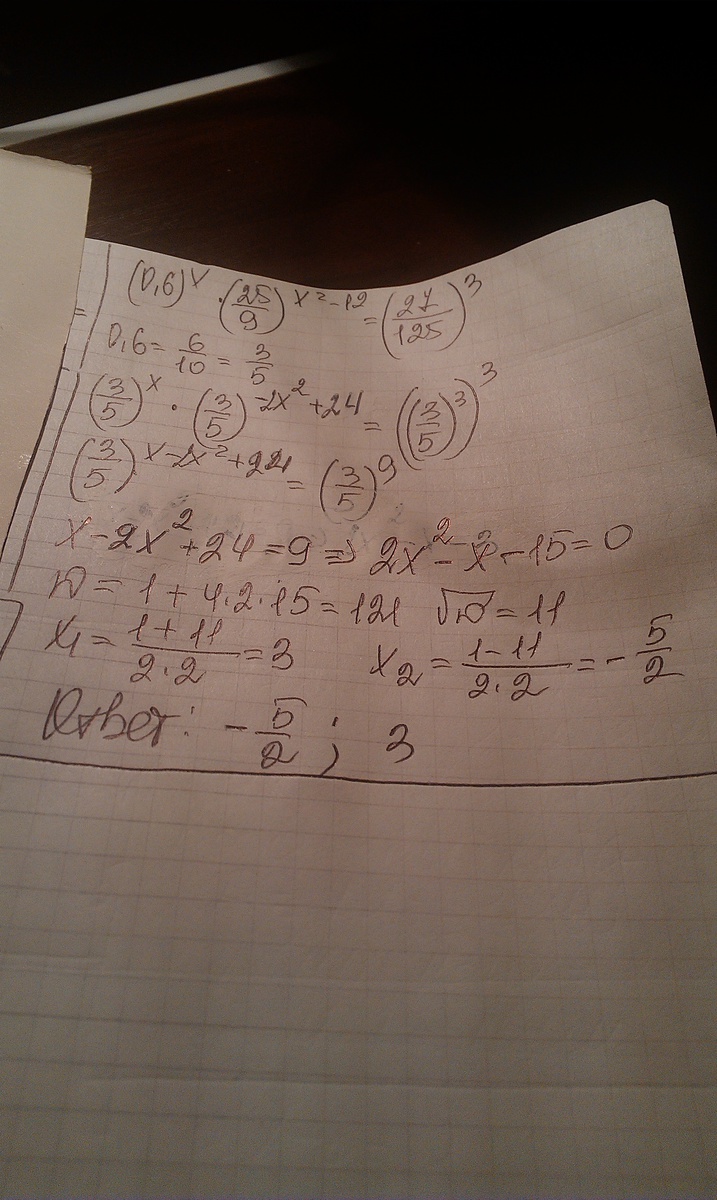 (0,6)^x · (25/9)^(x²-12) = (27/125)^3
0,6 = 6/10 = 3/5
(3/5)^x · (3/5)^(-2x²+24) = ((3/5)^3)^3
(3/5)^(x-2x²+24) = (3/5)^9
x-2x²+24=9 => 2x²-x-15=0
D = 1+4·2·15=121 √D=11
x₁ = (1+11)/(2·2) = 3 x₂ = (1-11)/(2·2) = -5/2
Ответ: -5/2 ; 3